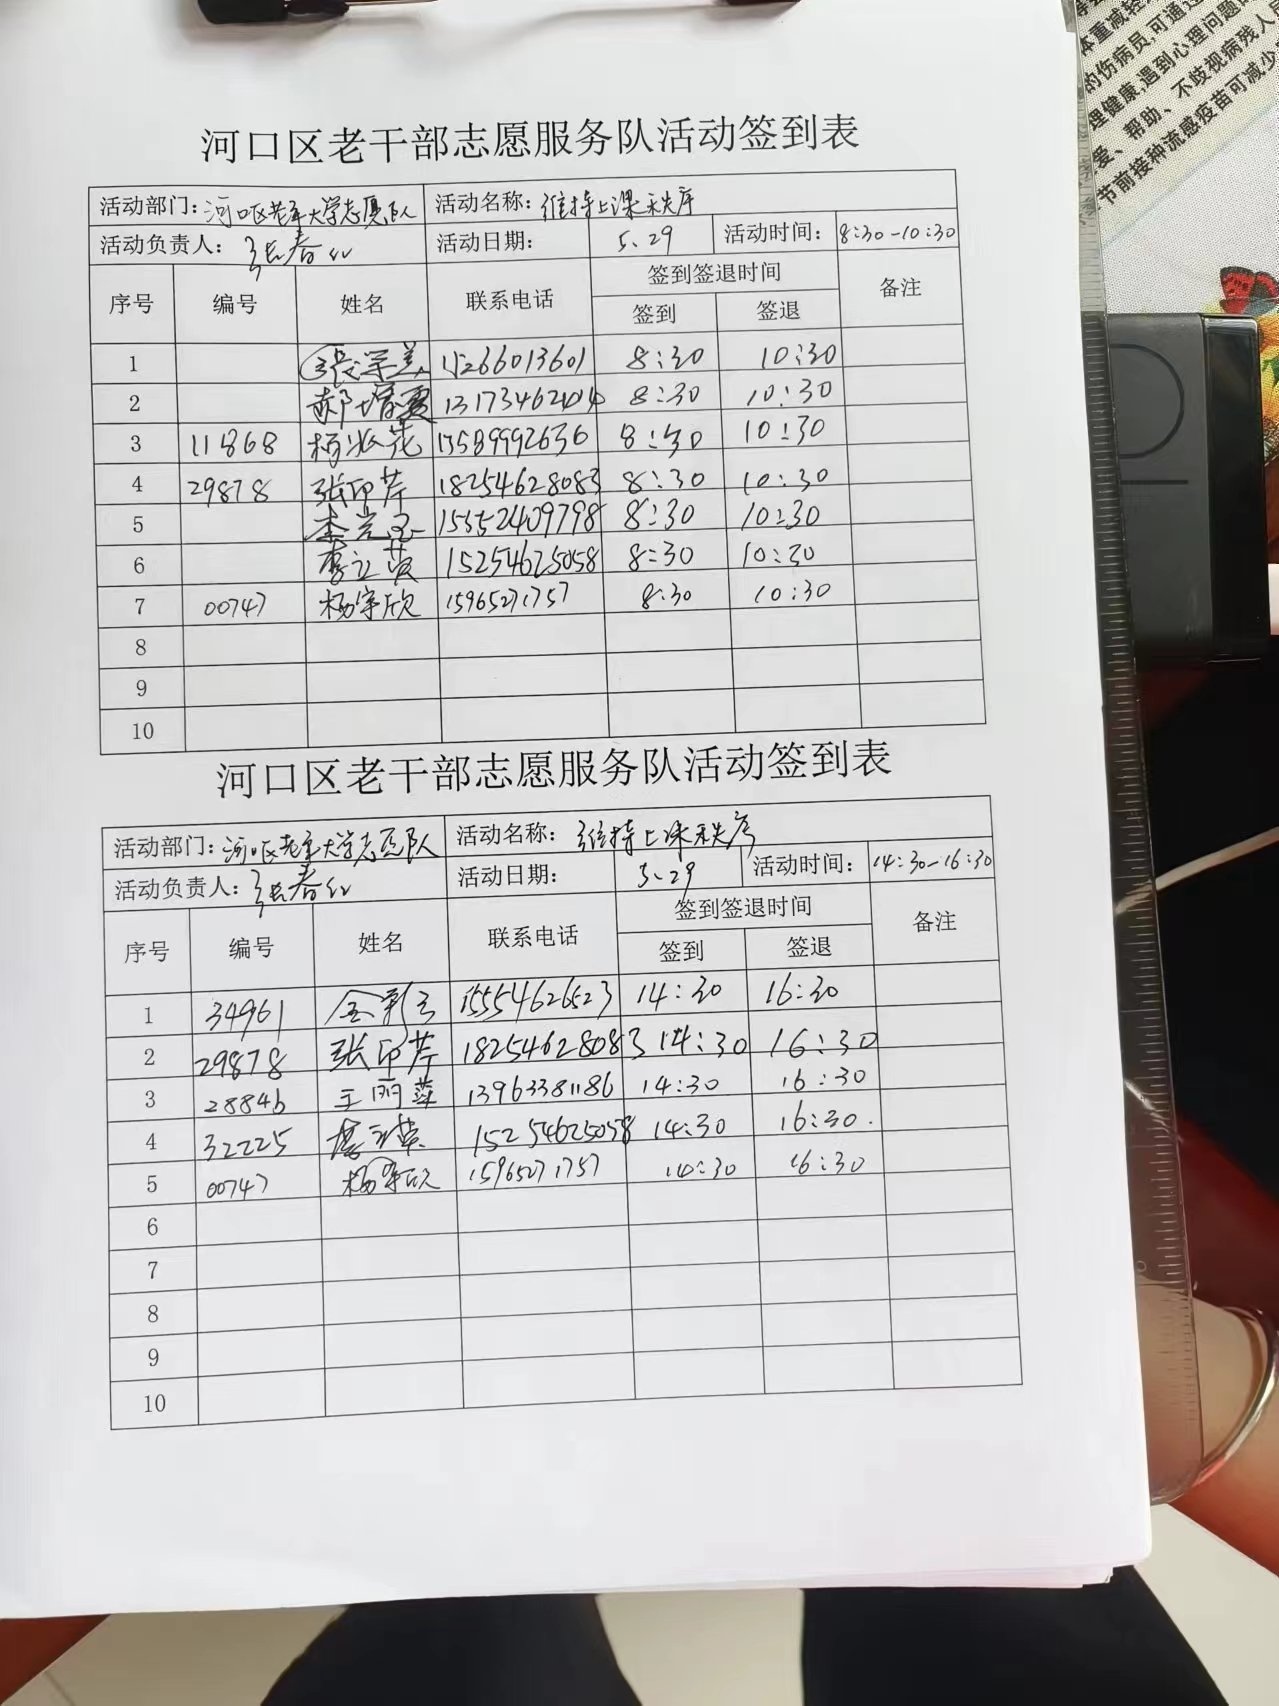 体重减轻
的伤病员,可通过
理健康,遇到心理问题
爱、帮助、不歧视病残人
节前接种流感疫苗可减少
河口区老干部志愿服务队活动签到表
活动部门: 河口区老年大学志愿队 活动名称: 维持上课秩序
活动负责人: 张春红 活动日期: 5.29 活动时间: 8:30-10:30
序号 编号 姓名 联系电话 签到签退时间 备注
签到 签退
1 8:30 10:30
2 8:30 10:30
3 11868 8:30 10:30
4 29878 张印芹 18254628083 8:30 10:30
5 15552409798 8:30 10:30
6 15254625058 8:30 10:30
7 00747 杨宇欣 15965271757 8:30 10:30
8
9
10
河口区老干部志愿服务队活动签到表
活动部门: 河口区老年大学志愿队 活动名称: 维持上课秩序
活动负责人: 张春红 活动日期: 5.29 活动时间: 14:30-16:30
序号 编号 姓名 联系电话 签到签退时间 备注
签到 签退
1 34961 15554626523 14:30 16:30
2 29878 张印芹 18254628083 14:30 16:30
3 28846 王丽萍 13963381186 14:30 16:30
4 32225 15254625058 14:30 16:30.
5 00747 杨宇欣 15965271757 14:30 16:30
6
7
8
9
10